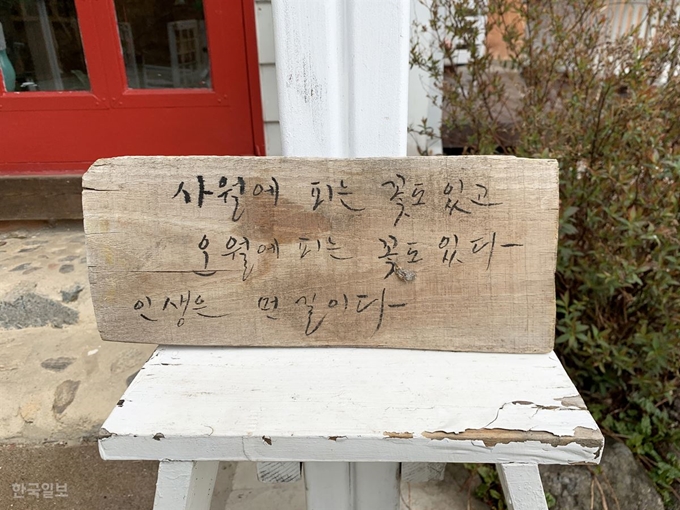 사월에 피는 꽃도 있고
오월에 피는 꽃도 있다
인생은 먼 길이다
한국일보